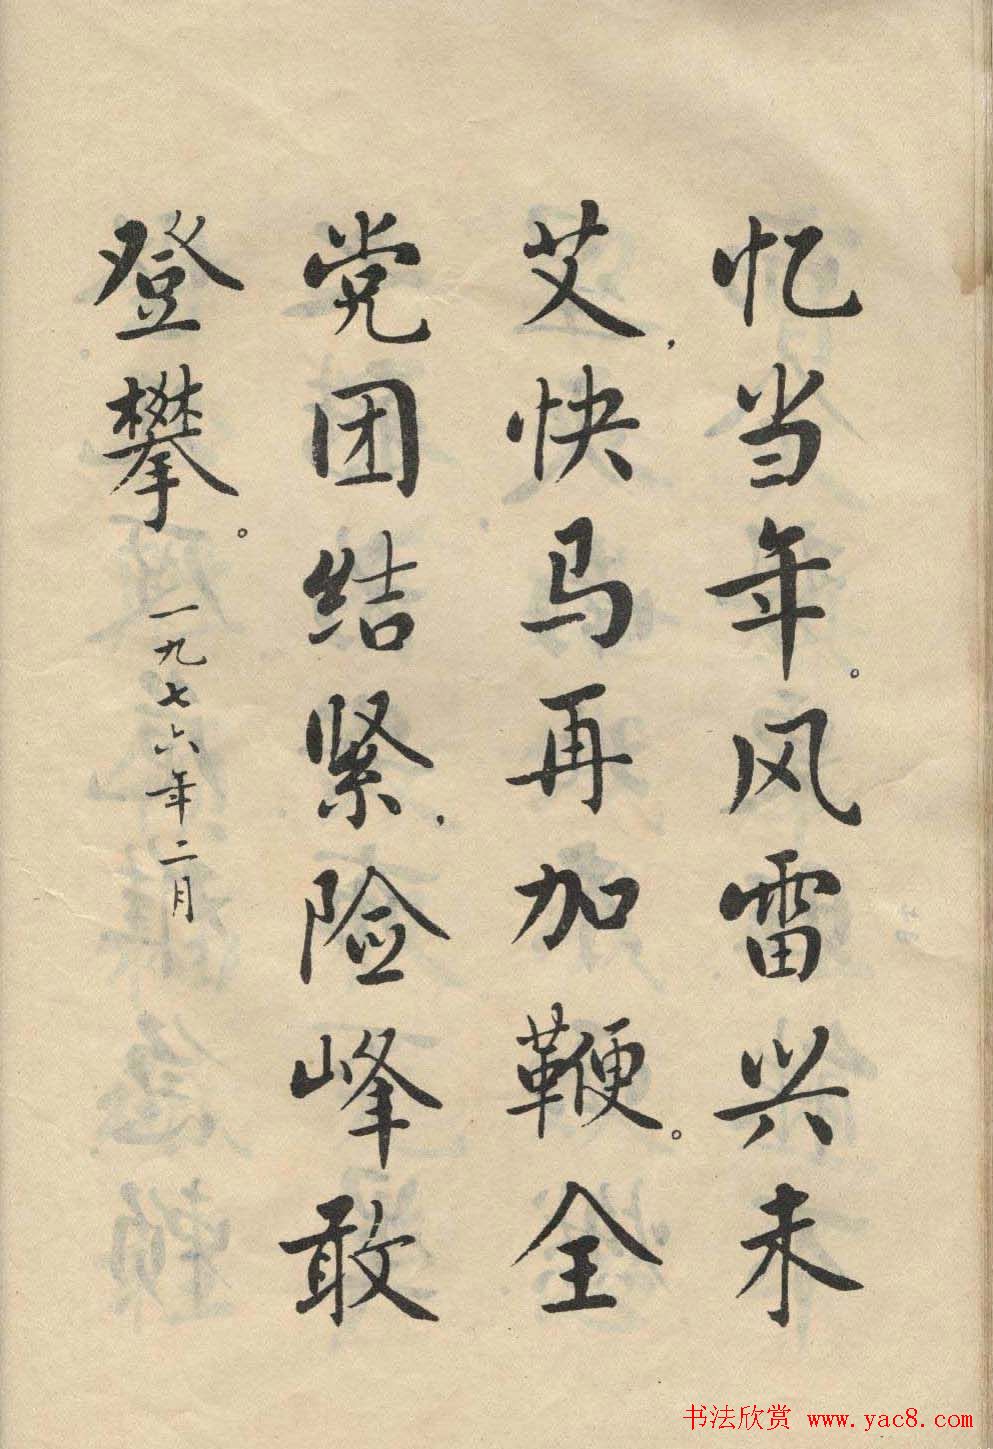 忆当年。风雷兴未
艾，快马再加鞭。全
党团结紧，险峰敢
登攀。
一九七六年二月
书法欣赏 www.yac8.com